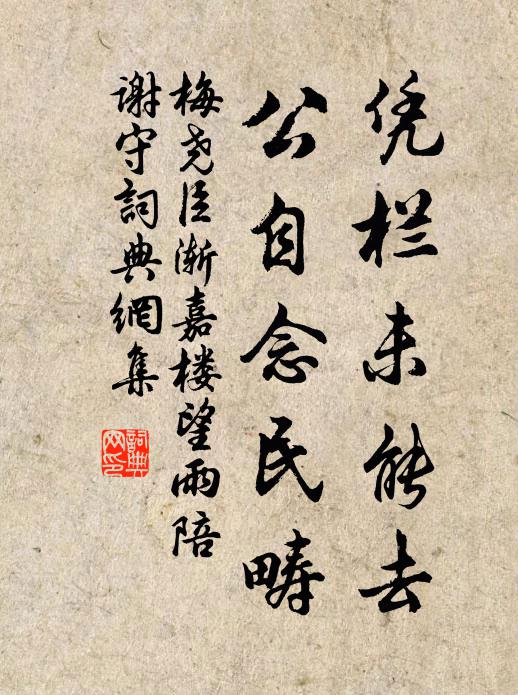 凭栏未能去
公自念民畴
梅尧臣渐嘉楼望雨陪
谢守詞典網集
詞典网印